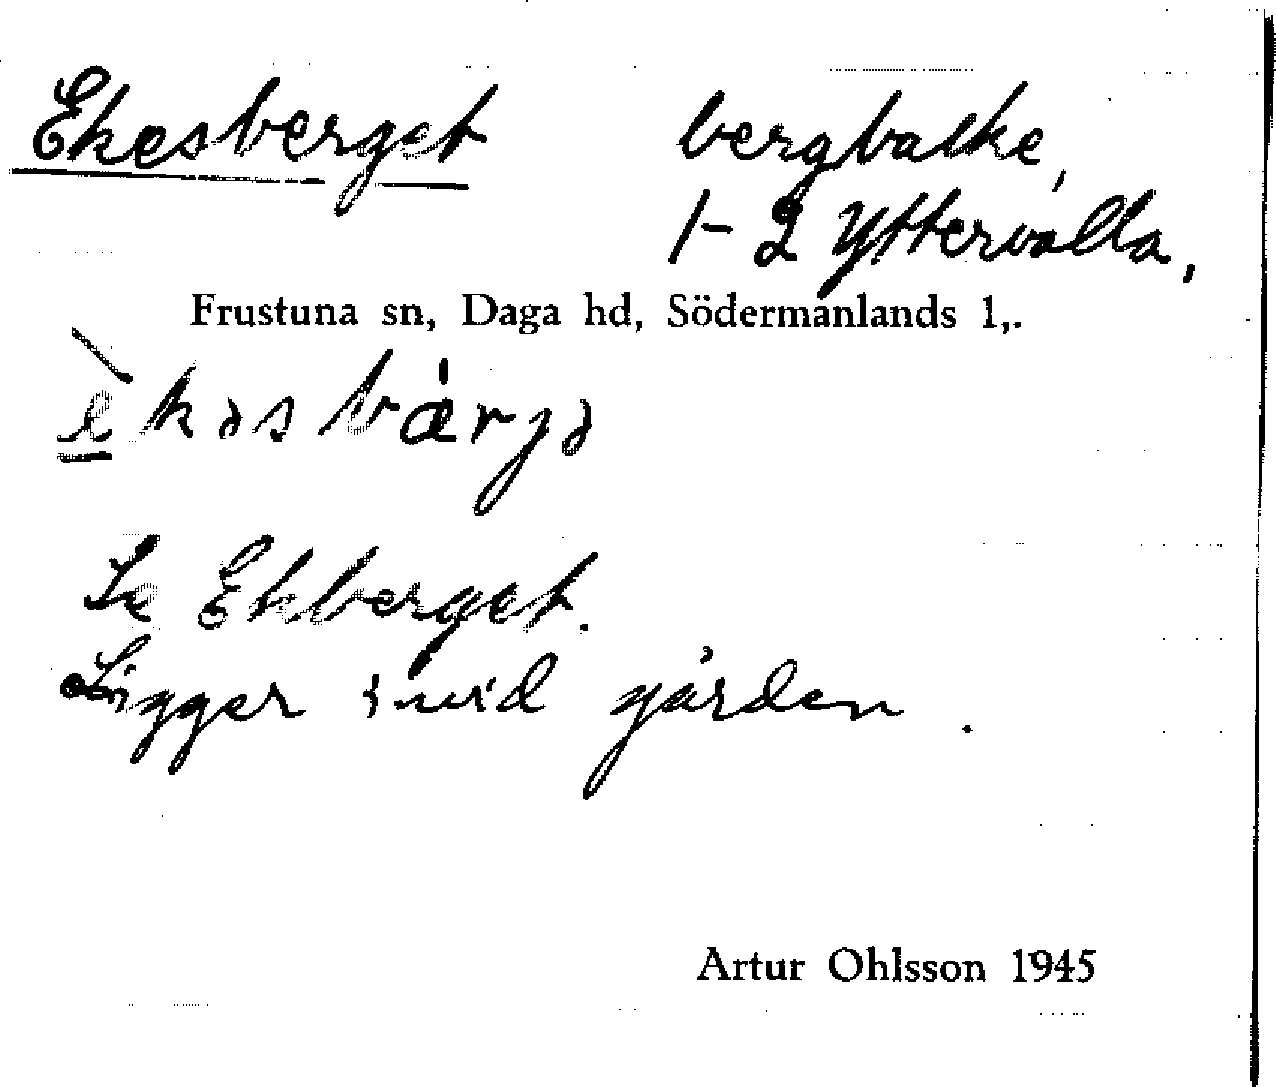 Ekesberget bergbalke,
1-2 Yttervalla,
Frustuna sn, Daga hd, Södermanlands l,.
è̱kəsbærjə
Se Ekberget.
Ligger invid gården.
Artur Ohlsson 1945